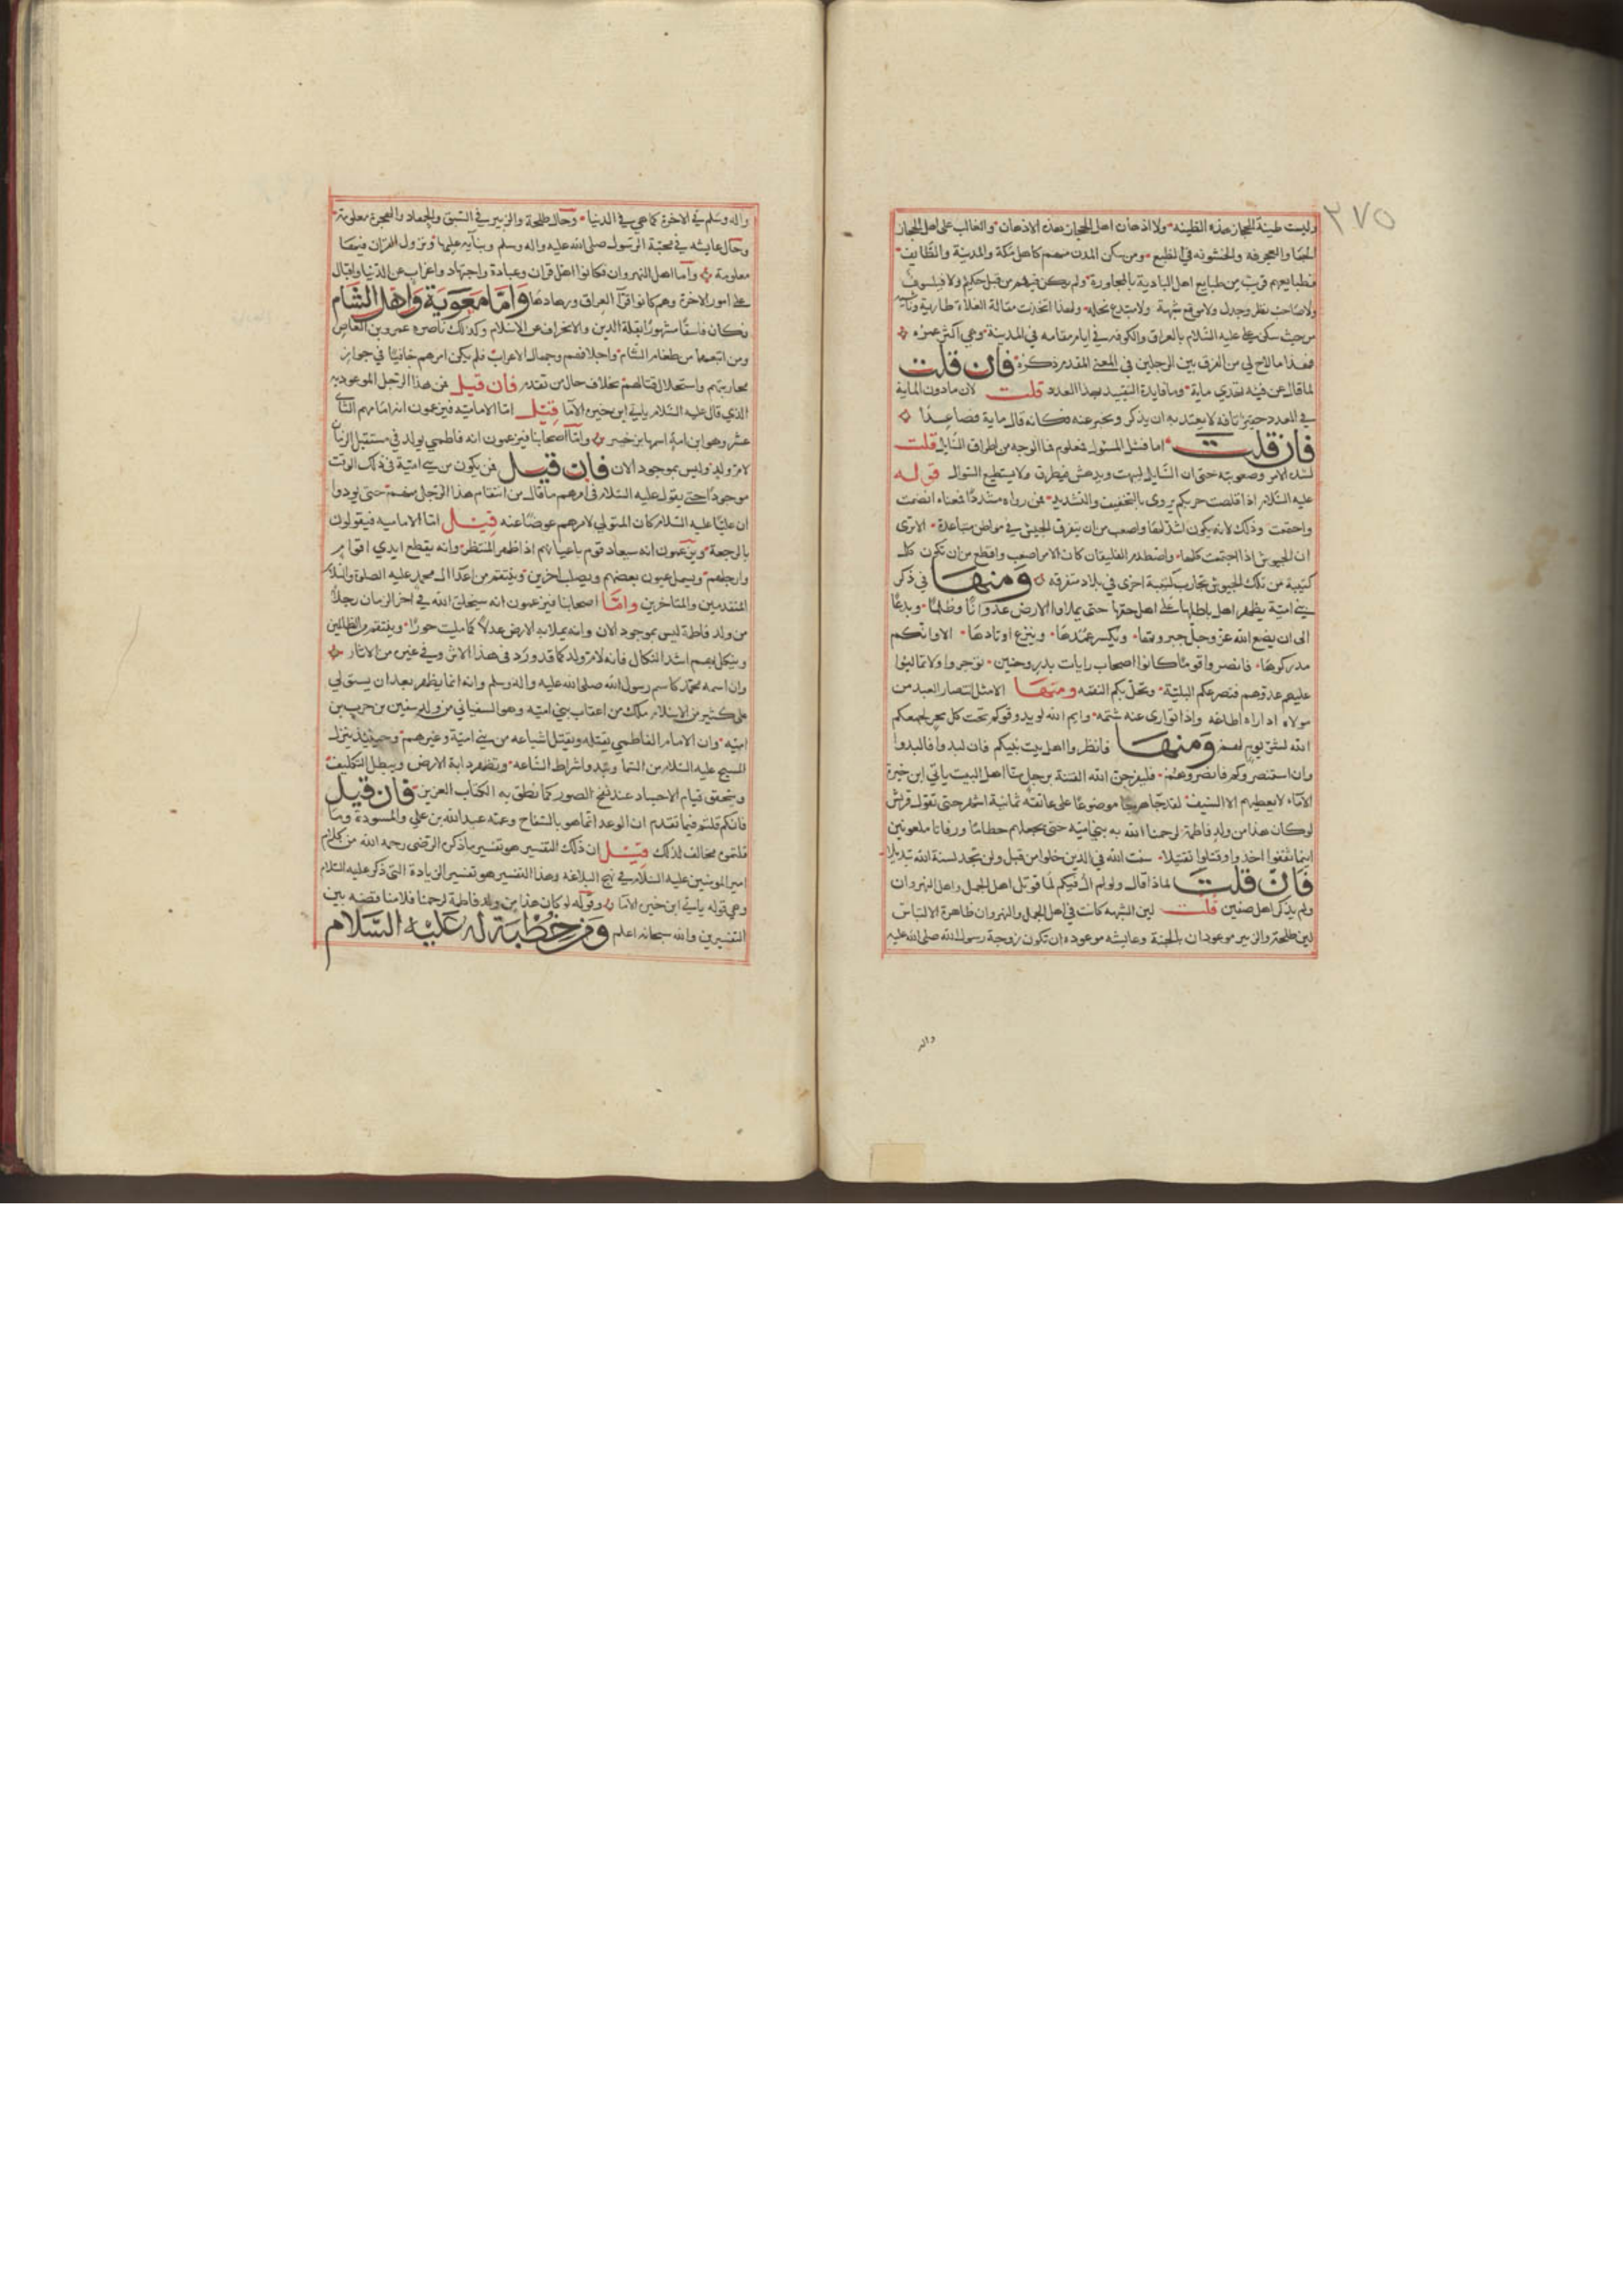 ٢٧٥
وليست طينة الحجاز هذه الطينه ولا اذهان اهل الحجاز هذه الاذهان والغالب على اهل الحجاز
الجفا والعجرفه والخشونه في الطبع ومن سكن المدن منهم كاهل مكة والمدينة والطايف
فطبايعهم قريبة من طبايع اهل البادية بالمجاورة ولم يكن فيهم من قبل حكيم ولا فيلسوف
ولا صاحب نظر وجدل ولا موقع شبهة ولا مبتدع نحله ولهذا اتخذت مقالة الغلاة طارية وناشية
من حيث سكن على عليه السلام بالعراق والكوفه في ايام مقامه في المدينة وهي اكثر عمره
فهذا ما لاح لي من الفرق بين الرجلين في المعنى المقدم ذكره فان قلت
لماذا قال عن فئه تهدي ماية وما فايدة التقييد بهذا العدد قلت لان ما دون الماية
في العدد حقير تافه لا يعتد به ان يذكر ويخبر عنه فكانه قال ماية فصاعدا
فان قلت اما فشل المسئول فمعلوم فما الوجه من اطراف السايل قلت
لشدة الامر وصعوبته حتى ان السايل ليبهت ويدهش فيطرق ولا يستطيع السوال قوله
عليه السلام اذا قلصت حربكم يروى بالتخفيف والتشديد فمن رواه مشددا فمعناه انضمت
واجتمعت وذلك لانه يكون اشد لها واصعب من ان يتفرق الجيش في مواطن متباعدة الا ترى
ان الجيوش اذا اجتمعت كلها واصطدم الفيلقان كان الامر اصعب وافظع من ان تكون كل
كتيبة من تلك الجيوش تحارب كتيبة اخرى في بلاد متفرقه ومنها في ذكر
بني امية يظهر اهل باطلها على اهل حقها حتى يملاوا الارض عدوانا وظلما وبدعا
الى ان يضع الله عز وجل جبروتها ويكسر عمدها وينزع اوتادها الا وانكم
مدركوها فانصروا قوما كانوا اصحاب رايات بدر وحنين توجروا ولا تمالئوا
عليهم عدوهم فتصرعكم البلية وتحل بكم النقمه ومنها الا مثل انتصار العبد من
مولاه اذا راه اطاعه واذا توارى عنه شتمه وايم الله لو يدوقوكم تحت كل حجر لجمعكم
الله لشر يوم لهم ومنها فانظروا اهل بيت نبيكم فان لبدوا فالبدوا
وان استنصروكم فانصروهم فليفرجن الله الفتنة برجل منا اهل البيت بابي ابن خيرة
الاماء لا يعطيهم الا السيف هرجا هرجا موضوعا على عاتقه ثمانية اشهر حتى تقول قريش
لو كان هذا من ولد فاطمة لرحمنا الله به ببني اميه حتى يجعلهم حطاما ورفاتا ملعونين
اينما ثقفوا اخذوا وقتلوا تقتيلا سنت الله في الذين خلوا من قبل ولن تجد لسنة الله تبديلا
فان قلت لماذا قال ولو لم اك فيكم لما قوتل اهل الجمل واهل النهروان
ولم يذكر اهل صفين قلت لان الشبهه كانت في اهل الجمل والنهروان ظاهرة الالتباس
لان طلحة والزبير موعودان بالجنة وعايشه موعوده ان تكون زوجة رسول الله صلى الله عليه
واله
واله وسلم في الاخرة كما هي في الدنيا وحال طلحة والزبير في السبق والجهاد والهجرة معلومة
وحال عايشه في محبة الرسول صلى الله عليه واله وسلم وثنايه عليها ونزول القران فيها
معلومة واما اهل النهروان فكانوا اهل قران وعبادة واجتهاد واعزاب عن الدنيا واقبال
على امور الاخرة وهم كانوا قراء العراق وزهادها واما معوية واهل الشام
فكان فاسقا مشهورا بقلة الدين والانحراف عن الاسلام وكذلك ناصره عمرو بن العاص
ومن اتبعهما من طغام الشام واجلافهم وجهال الاعراب فلم يكن امرهم خافيا في جواز
محاربتهم واستحلال قتالهم بخلاف حال من تقدم فان قيل فمن هذا الرجل الموعود به
الذي قال عليه السلام بابي ابن خيرة الاما قيل اما الامامية فيزعمون انه امامهم الثاني
عشر وهو ابن امة اسمها نرجس واما اصحابنا فيزعمون انه فاطمي يولد في مستقبل الزمان
لام ولد وليس بموجود الان فان قيل فمن يكون من بني امية في ذلك الوقت
موجودا حتى يقول عليه السلام في امرهم ما قال من انتقام هذا الرجل منهم حتى يودوا
ان عليا عليه السلام كان المتولي لامرهم عوضا عنه قيل اما الامامية فيقولون
بالرجعة ويزعمون انه سيعاد قوم باعيانهم اذا ظهر المنتظر وانه يقطع ايدي اقوام
وارجلهم ويسمل عيون بعضهم ويصلب اخرين وينتقم من اعدا ال محمد عليه الصلوة والسلام
المتقدمين والمتاخرين واما اصحابنا فيزعمون انه سيخلق الله في اخر الزمان رجلا
من ولد فاطمة ليس بموجود الان وانه يملا به الارض عدلا كما مليت جورا وينتقم من الظالمين
وينكل بهم اشد النكال فانه لام ولد كما قد ورد في هذا الاثر وفي غيره من الاثار
وان اسمه محمد كاسم رسول الله صلى الله عليه واله وسلم وانه انما يظهر بعد ان يستولي
على كثير من الاسلام ملك من اعقاب بني اميه وهو السفياني من ولد سفين بن حرب بن
اميه وان الامام الفاطمي يقتله ويقتل اشياعه من بني امية وغيرهم وحينيذ ينزل
المسيح عليه السلام من السما وتبدو اشراط الساعه وتظهر دابة الارض ويبطل التكليف
ويتحقق قيام الاجساد عند نفخ الصور كما نطق به الكتاب العزيز فان قيل
فانكم قلتم فيما تقدم ان الوعد انما هو بالسفاح وعمه عبد الله بن علي والمسودة وما
قلتموه مخالف لذلك قيل ان ذلك التفسير هو تفسير ما ذكره الرضى رحمه الله من كلام
امير المومنين عليه السلام في نهج البلاغه وهذا التفسير هو تفسير الزيادة التي ذكر عليه السلام
وهي قوله بابي ابن خيرة الاما وقوله لو كان هذا من ولد فاطمة لرحمنا فلا مناقضه بين
التفسيرين والله سبحانه اعلم ومن خطبة له عليه السلام